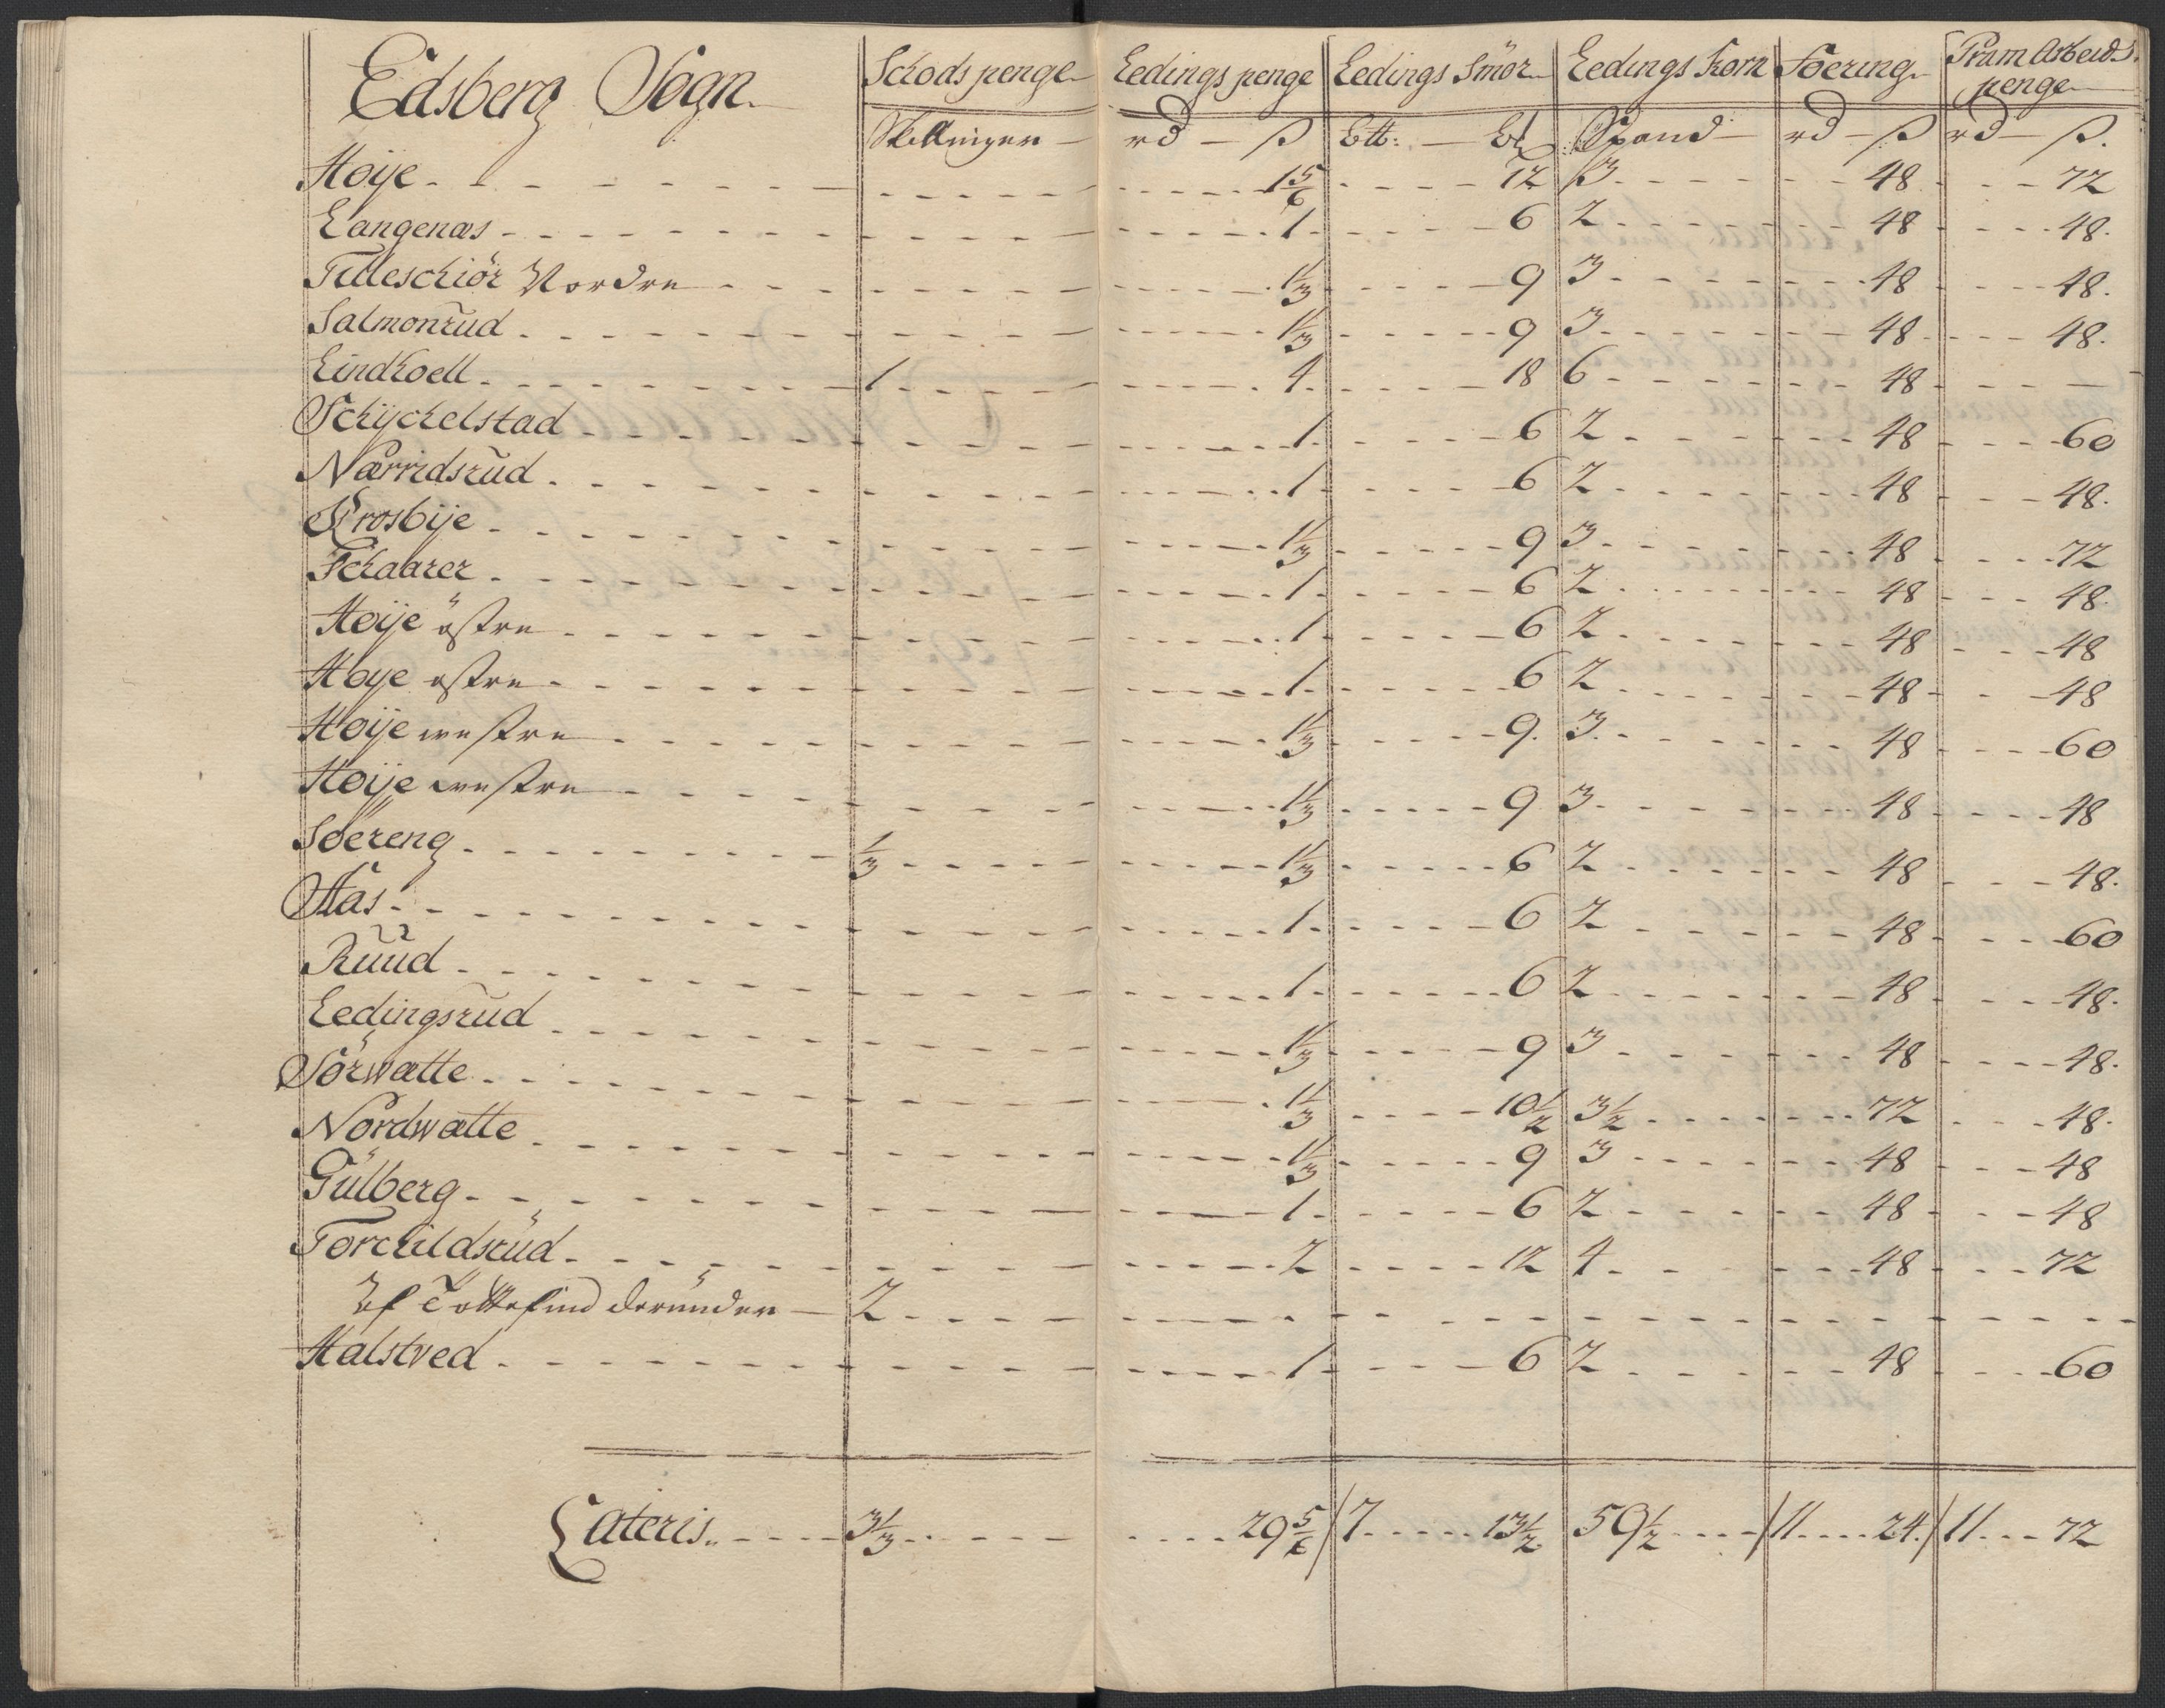 Edsberg Sogn. | Schods penge | Ledings penge | Ledings Smör | Ledings Korn | Foering | Pram Arbeids penge
Skillinger | rd — ß | Btt: — | Spand | rd — ß | rd — ß.
Höije | | 1 5/6 | 12 | 3 | 48 | 72
Langenæs | | 1 | 6 | 2 | 48 | 48.
Tilleschiör Nordre | | 1 1/3 | 9 | 3 | 48 | 48.
Salmonrud | | 1 1/3 | 9 | 3 | 48 | 48.
Lindhoell | 1 | 4 | 18 | 6 | 48 | —
Schÿchelstad | | 1 | 6 | 2 | 48 | 60
Nærridsrud | | 1 | 6 | 2 | 48 | 48.
Krosbije | | 1 1/3 | 9 | 3 | 48 | 72
Schaarer | | 1 | 6 | 2 | 48 | 48.
Höije östre | | 1 | 6 | 2 | 48 | 48
Höye östre | | 1 | 6 | 2 | 48 | 48
Höije westre | | 1 1/3 | 9. | 3. | 48 | 60
Höije westre | | 1 1/3 | 9 | 3 | 48 | 48
Söereng | 1/3 | 1 1/3 | 6 | 2 | 48 | 48.
Aas | | 1 | 6 | 2 | 48 | 60
Ruud | | 1 | 6 | 2 | 48 | 48.
Ledingsrud | | 1 1/3 | 9 | 3 | 48 | 48.
Sörwætte | | 1 1/3 | 10 1/2 | 3 1/2 | 72 | 48.
Nordwætte | | 1 1/3 | 9 | 3 | 48 | 48
Gulberg | | 1 | 6 | 2 | 48 | 48
Torchildsrud | | 2 | 12 | 4 | 48 | 72
Af derunder | 2
Halstved | | 1 | 6 | 2 | 48 | 60
Lateris | 3 1/3 | 29 5/6 | 7 13 1/2 | 59 1/2 | 11 24. | 11 72